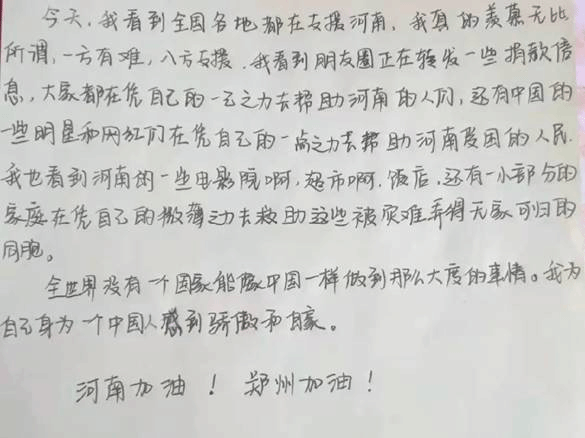 今天，我看到全国各地都在支援河南，我真的羡慕无比
所谓，一方有难，八方支援．我看到朋友圈正在转发一些捐款信
息，大家都在凭自己的一己之力去帮助河南的人们，还有中国的
一些明星和网红们在凭自己的一点之力去帮助河南受困的人民．
我也看到河南的一些电影院啊，超市啊，饭店，还有一小部分的
家庭在凭自己的微薄之力去救助这些被灾难弄得无家可归的
同胞。
全世界没有一个国家能像中国一样做到那么大度的事情。我为
自己身为一个中国人感到骄傲和自豪。
河南加油！郑州加油！